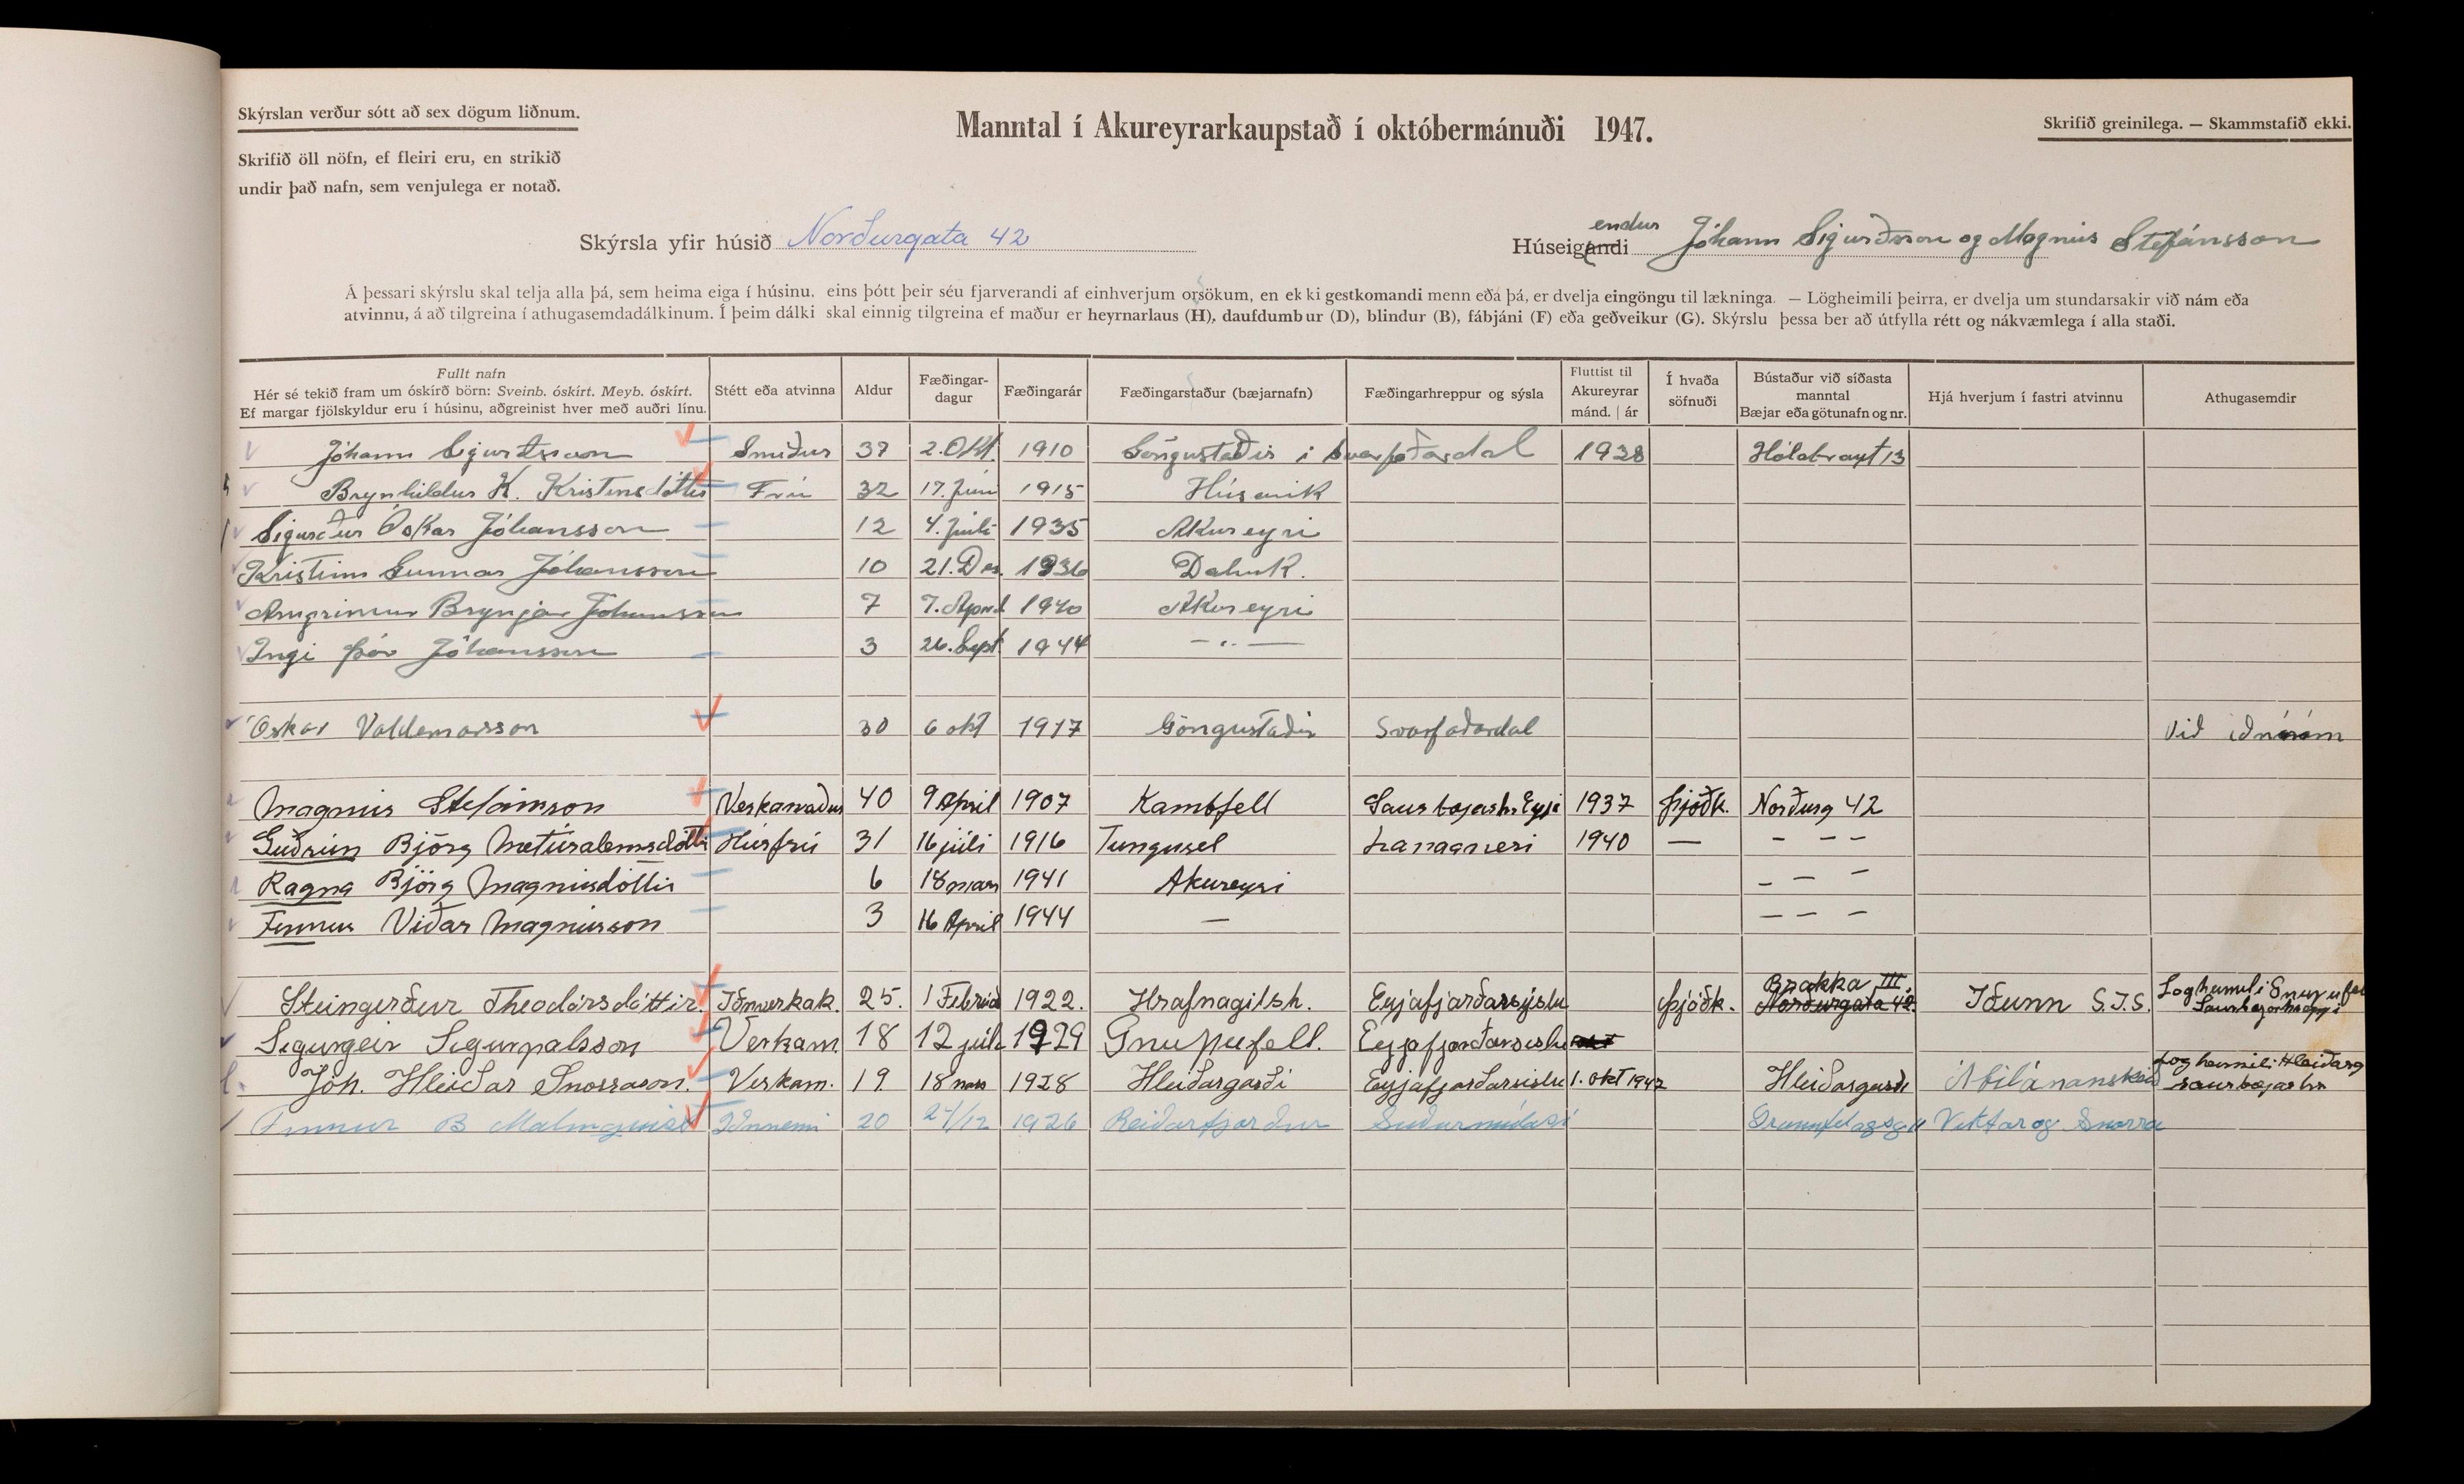 Skýrslan verður sótt að sex dögum liðnum.
Manntal í Akureyrarkaupstað í októbermánuði 1947.
Skrifið greinilega. — Skammstafið ekki.
Skrifið öll nöfn, ef fleiri eru, en strikið
undir það nafn, sem venjulega er notað.
Skýrsla yfir húsið Norðurgata 42
endur
Húseigandi Jóhann Sigurðsson og Magnús Stefánsson
Á þessari skýrslu skal telja alla þá, sem heima eiga í húsinu, eins þótt þeir séu fjarverandi af einhverjum orsökum, en ekki gestkomandi menn eða þá, er dvelja eingöngu til lækninga. — Lögheimili þeirra, er dvelja um stundarsakir við nám eða
atvinnu, á að tilgreina í athugasemdadálkinum. Í þeim dálki skal einnig tilgreina ef maður er heyrnarlaus (H), daufdumbur (D), blindur (B), fábjáni (F) eða geðveikur (G). Skýrslu þessa ber að útfylla rétt og nákvæmlega í alla staði.
Fullt nafn
Hér sé tekið fram um óskírð börn: Sveinb. óskírt. Meyb. óskírt.
Ef margar fjölskyldur eru í húsinu, aðgreinist hver með auðri línu.
Stétt eða atvinna
Aldur
Fæðingar-
dagur
Fæðingarár
Fæðingarstaður (bæjarnafn)
Fæðingarhreppur og sýsla
Fluttist til
Akureyrar
mánd. | ár
Í hvaða
söfnuði
Bústaður við síðasta
manntal
Bæjar eða götunafn og nr.
Hjá hverjum í fastri atvinnu
Athugasemdir
Jóhann Sigurðsson Smiður 37 2. Okt. 1910 Göngustaðir í Svarfaðardal 1938 Hólabraut 13
Brynhildur K. Kristinsdóttir Frú 32 17. Júní 1915 Húsavik
Sigurður Óskar Jóhansson 12 4. Júlí 1935 Akureyri
Kristinn Gunnar Jóhansson 10 21. Des. 1936 Dalvik.
Arngrimur Brynjar Jóhansson 7 7. Apríl 1940 Akureyri
Ingi Þór Jóhansson 3 26. Sept. 1944 — " —
Óskar Valdemarsson 30 6 okt 1917 Göngustaðir Svarfaðardal Við iðnám
Magnús Stefánson Verkamaður 40 9 April 1907 Kambfell Saurbæjarhr Eyj 1937 þjóðk. Norðurg 42
Guðrún Björg Metúsalemsdóttir Húsfrú 31 16 júli 1916 Tungusel Langanesi 1940 — - - -
Ragna Björg Magnúsdóttir 6 18 mars 1941 Akureyri - - -
Finnur Viðar Magnússon 3 16 April 1944 — - - -
Brakka III.
Steingerður Theodórsdóttir. Iðnverkak. 25. 1 Febrúar 1922. Hrafnagilsh. Eyjafjarðarsýslu þjóðk. Norðurgata 42. Iðunn S.Í.S. Logheimili Gnupufel
Saurbæjarhreppi
Sigurgeir Sigurpalsson Verkam. 18 12 júli 1929 Gnupufell. Eyjafjarðarsislu
Jóh. Hleiðar Snorrason. Verkam. 19. 18 mars 1928 Hleiðargarði Eyjafjarðarsislu 1. okt 1947 Hleiðargarði Log heimili Hleiðarg
saurbæjarhr
Finnur B Malmquist Iðnnemi 20 27/12 1926 Reiðarfjorður Suðurmúlasí Vektar og Snorra